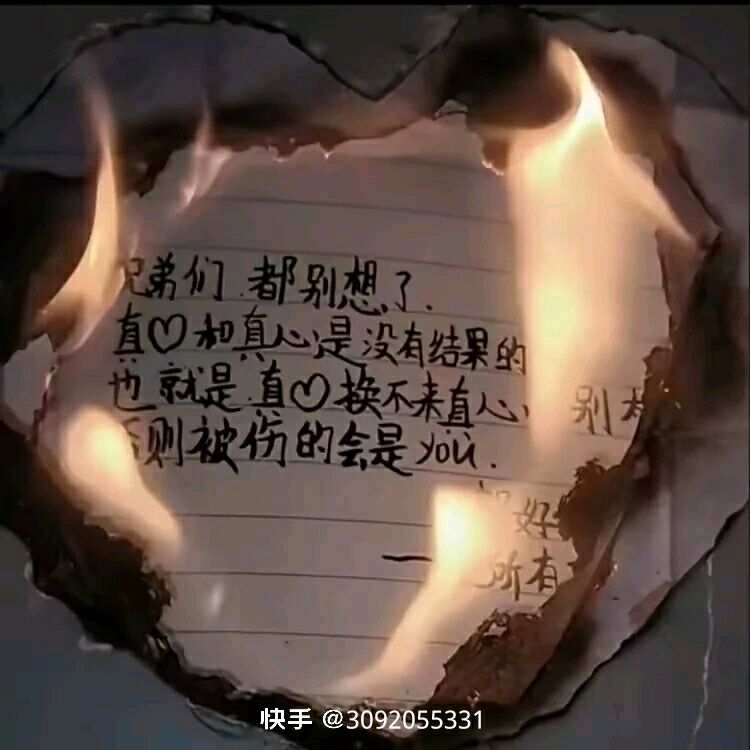 兄弟们.都别想了.
真♡和真心是没有结果的
也就是.真♡换不来真心, 别太
否则被伤的会是you.
好
一 所有
快手 @3092055331